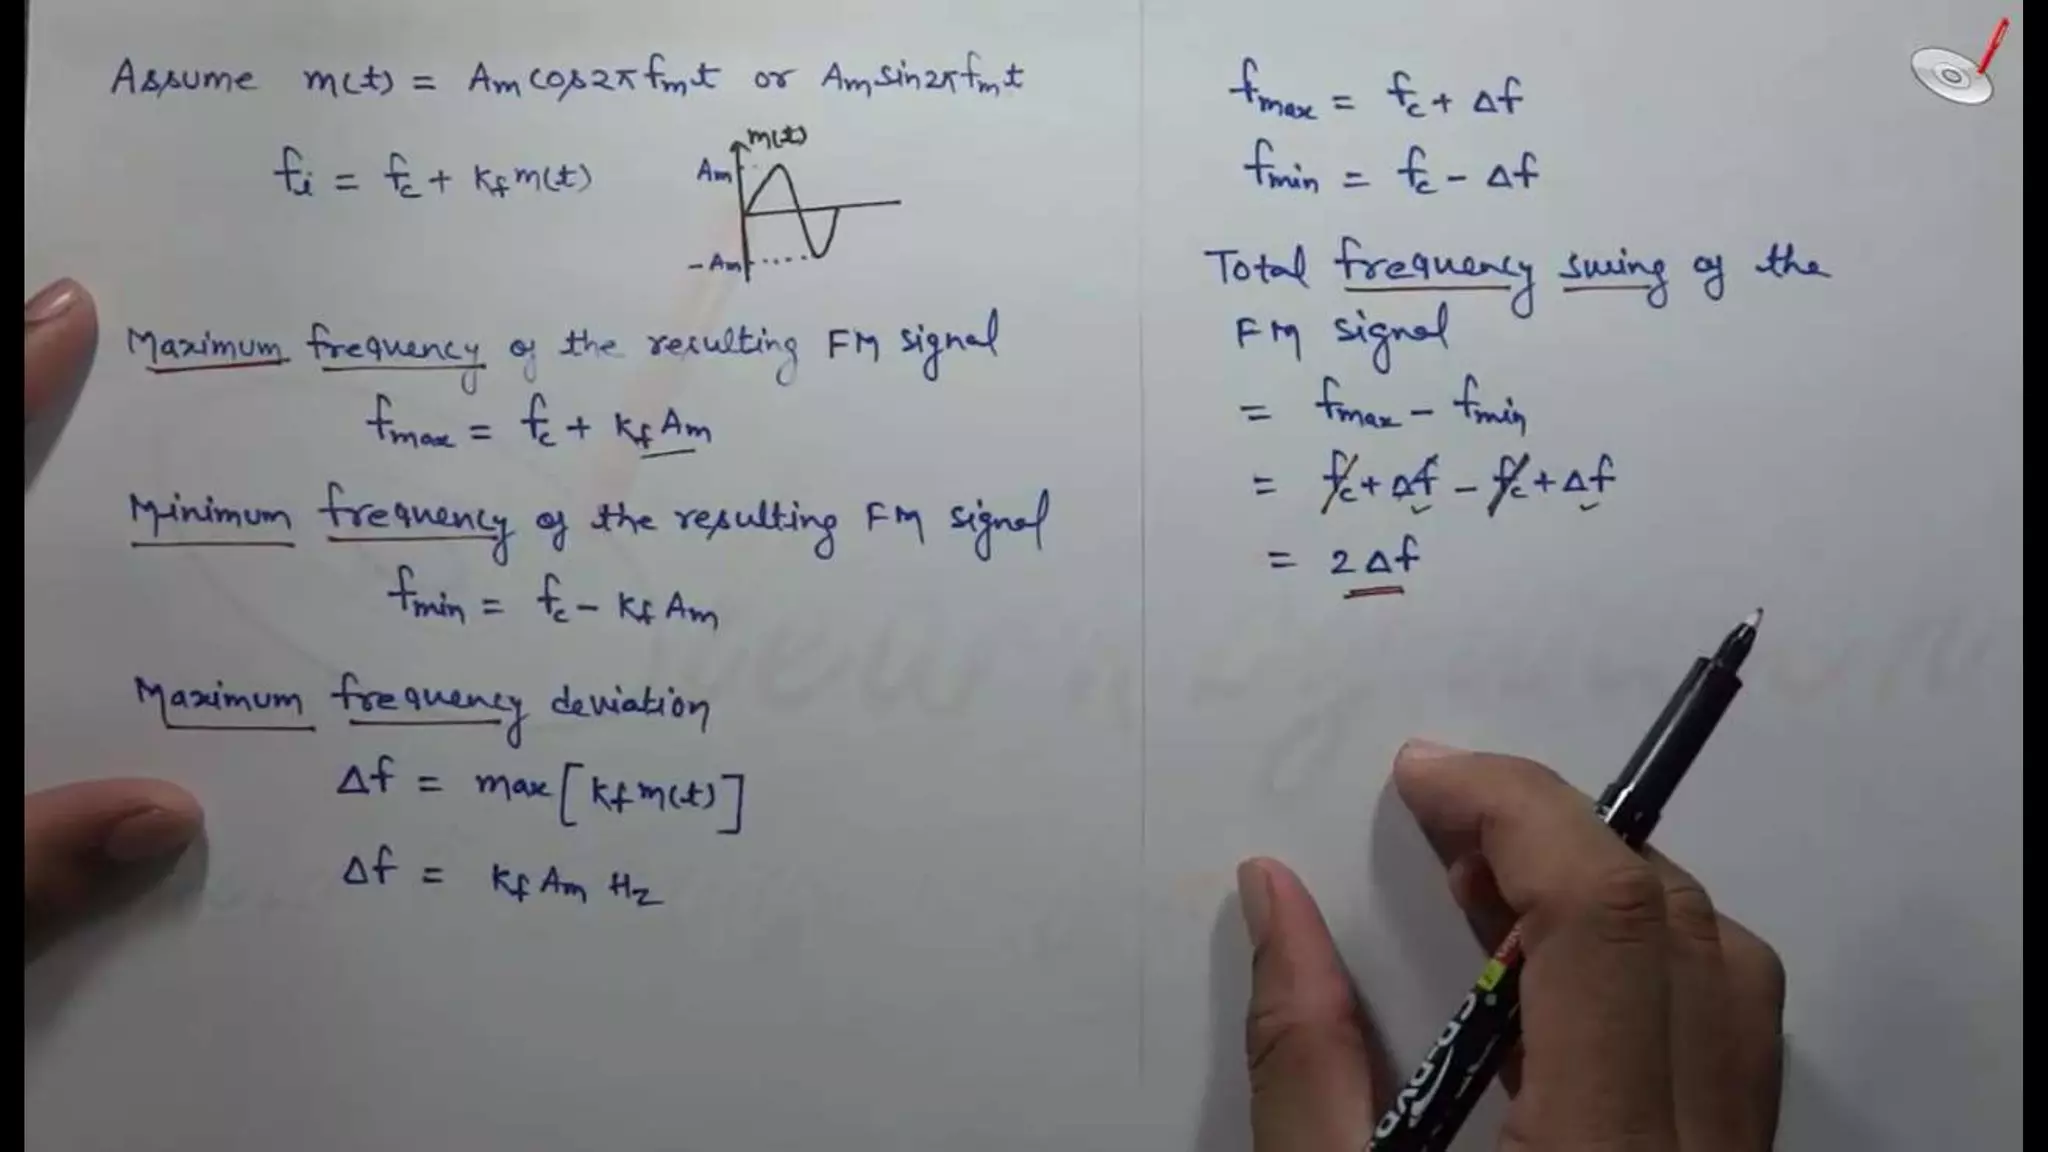 Assume m(t) = Am cos2πfmt or Am sin2πfmt
fi = fc + kf m(t)
m(t)
Am
-Am
Maximum frequency of the resulting FM signal
fmax = fc + kf Am
Minimum frequency of the resulting FM signal
fmin = fc - kf Am
Maximum frequency deviation
Δf = max [kf m(t)]
Δf = kf Am Hz
fmax = fc + Δf
fmin = fc - Δf
Total frequency swing of the
FM signal
= fmax - fmin
= fc + Δf - fc + Δf
= 2Δf
CD-DVD